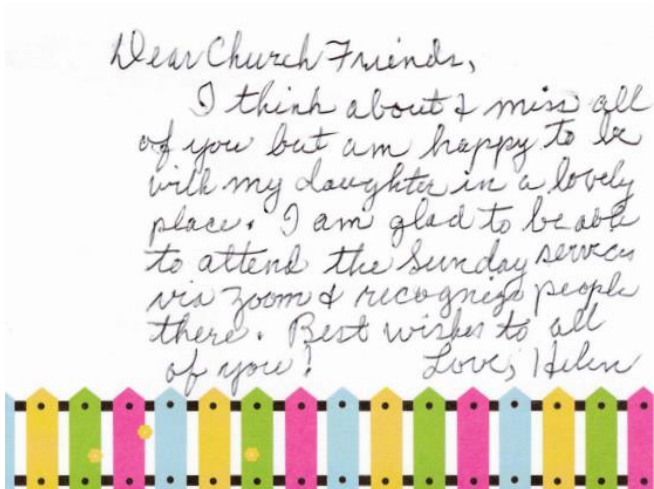 Dear Church Friends,
I think about & miss all
of you but am happy to be
with my daughter in a lovely
place. I am glad to be able
to attend the Sunday services
via zoom & recognize people
there. Best wishes to all
of you! Love, Helen